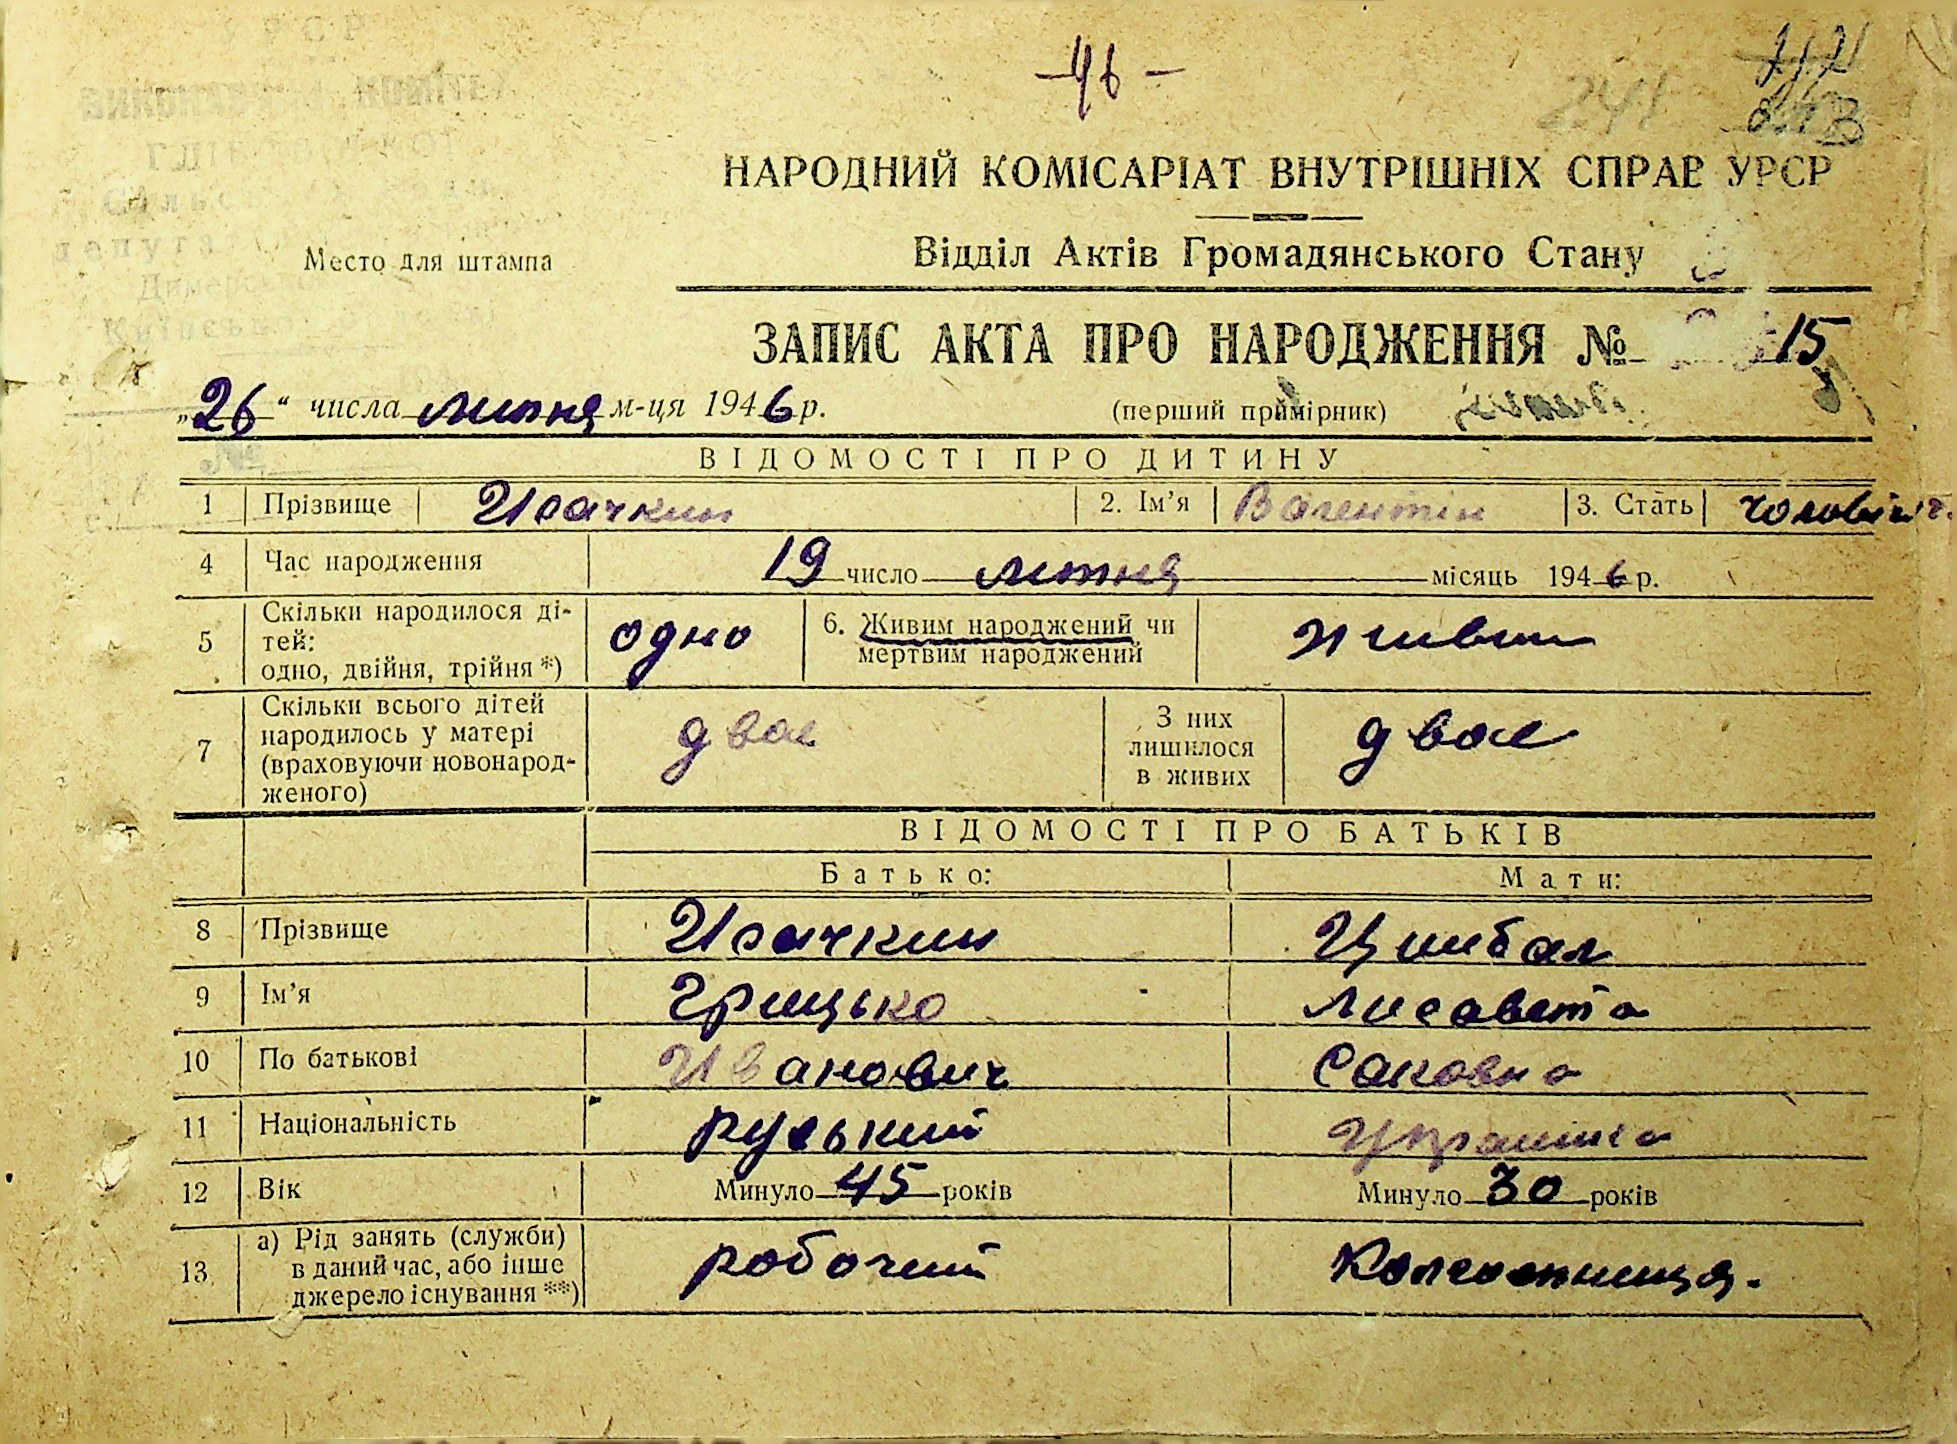 УРСР
ВИКОНАВЧИЙ КОМІТЕТ
-46-
241
НАРОДНИЙ КОМІСАРІАТ ВНУТРІШНІХ СПРАВ УРСР
Відділ Актів Громадянського Стану
Место для штампа
ЗАПИС АКТА ПРО НАРОДЖЕННЯ № 15
„26“ числа липня м-ця 1946 р. (перший примірник)
ВІДОМОСТІ ПРО ДИТИНУ
1 Прізвище Исачкин 2. Ім’я Валентін 3. Стать
4 Час народження 19 число липня місяць 1946 р.
5 Скільки народилося ді-
тей:
одно, двійня, трійня *) одно 6. Живим народжений чи
мертвим народжений живим
7 Скільки всього дітей
народилось у матері
(враховуючи новонарод-
женого) двое З них
лишилося
в живих двое
ВІДОМОСТІ ПРО БАТЬКІВ
Батько: Мати:
8 Прізвище Исачкин Цимбал
9 Ім’я Грицько Лисавета
10 По батькові Иванович
11 Національність руський Українка
12 Вік Минуло 45 років Минуло 30 років
13 а) Рід занять (служби)
в даний час, або інше
джерело існування **) робочий Колгоспниця.